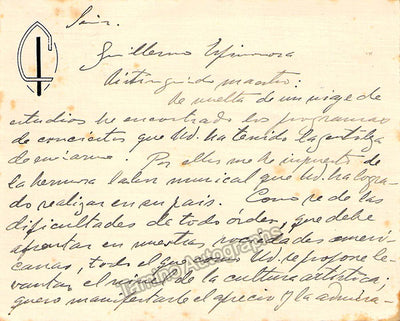 Señor
Guillermo Espinosa
Distinguido maestro:
De vuelta de un viaje de
estudios he encontrado los programas
de conciertos que Ud. ha tenido la gentileza
de enviarme. Por ellos me he impuesto de
la hermosa labor musical que Ud. ha logra-
do realizar en su país. Como se de las
dificultades de todo órden, que debe
afrontar en nuestras sociedades ameri-
canas, todo el que como Ud. se propone le-
vantar el nivel de la cultura artística,
quiero manifestarle el aprecio y la admira-
Tamino Autographs